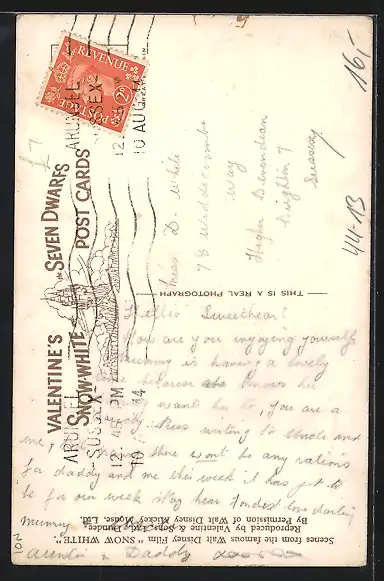 £7
16,-
44-13
VALENTINE'S
SNOW-WHITE and the SEVEN DWARFS
POST CARDS
POSTAGE REVENUE
2D
ARUNDEL
SUSSEX
12.45 PM
10 AUG
44
ARUNDEL
SUSSEX
12.
10 AUG
Miss D. White
78 Widdecombe
Way
Higher Bevendean
Brighton 7
Sussex
THIS IS A REAL PHOTOGRAPH
Hello Sweetheart
you are you enjoying yourself
Mummy is having a lovely
because she knows he
want her to, you are a
writing to Uncle and
me, there wont be any rations
for daddy and me this week it has got to
be for our week stay hear fondest love darling
mummy
Auntie & Daddy
Scenes from the famous Walt Disney Film "SNOW WHITE".
Reproduced by Valentine & Sons, Ltd., Dundee,
By Permission of Walt Disney Mickey Mouse, Ltd.